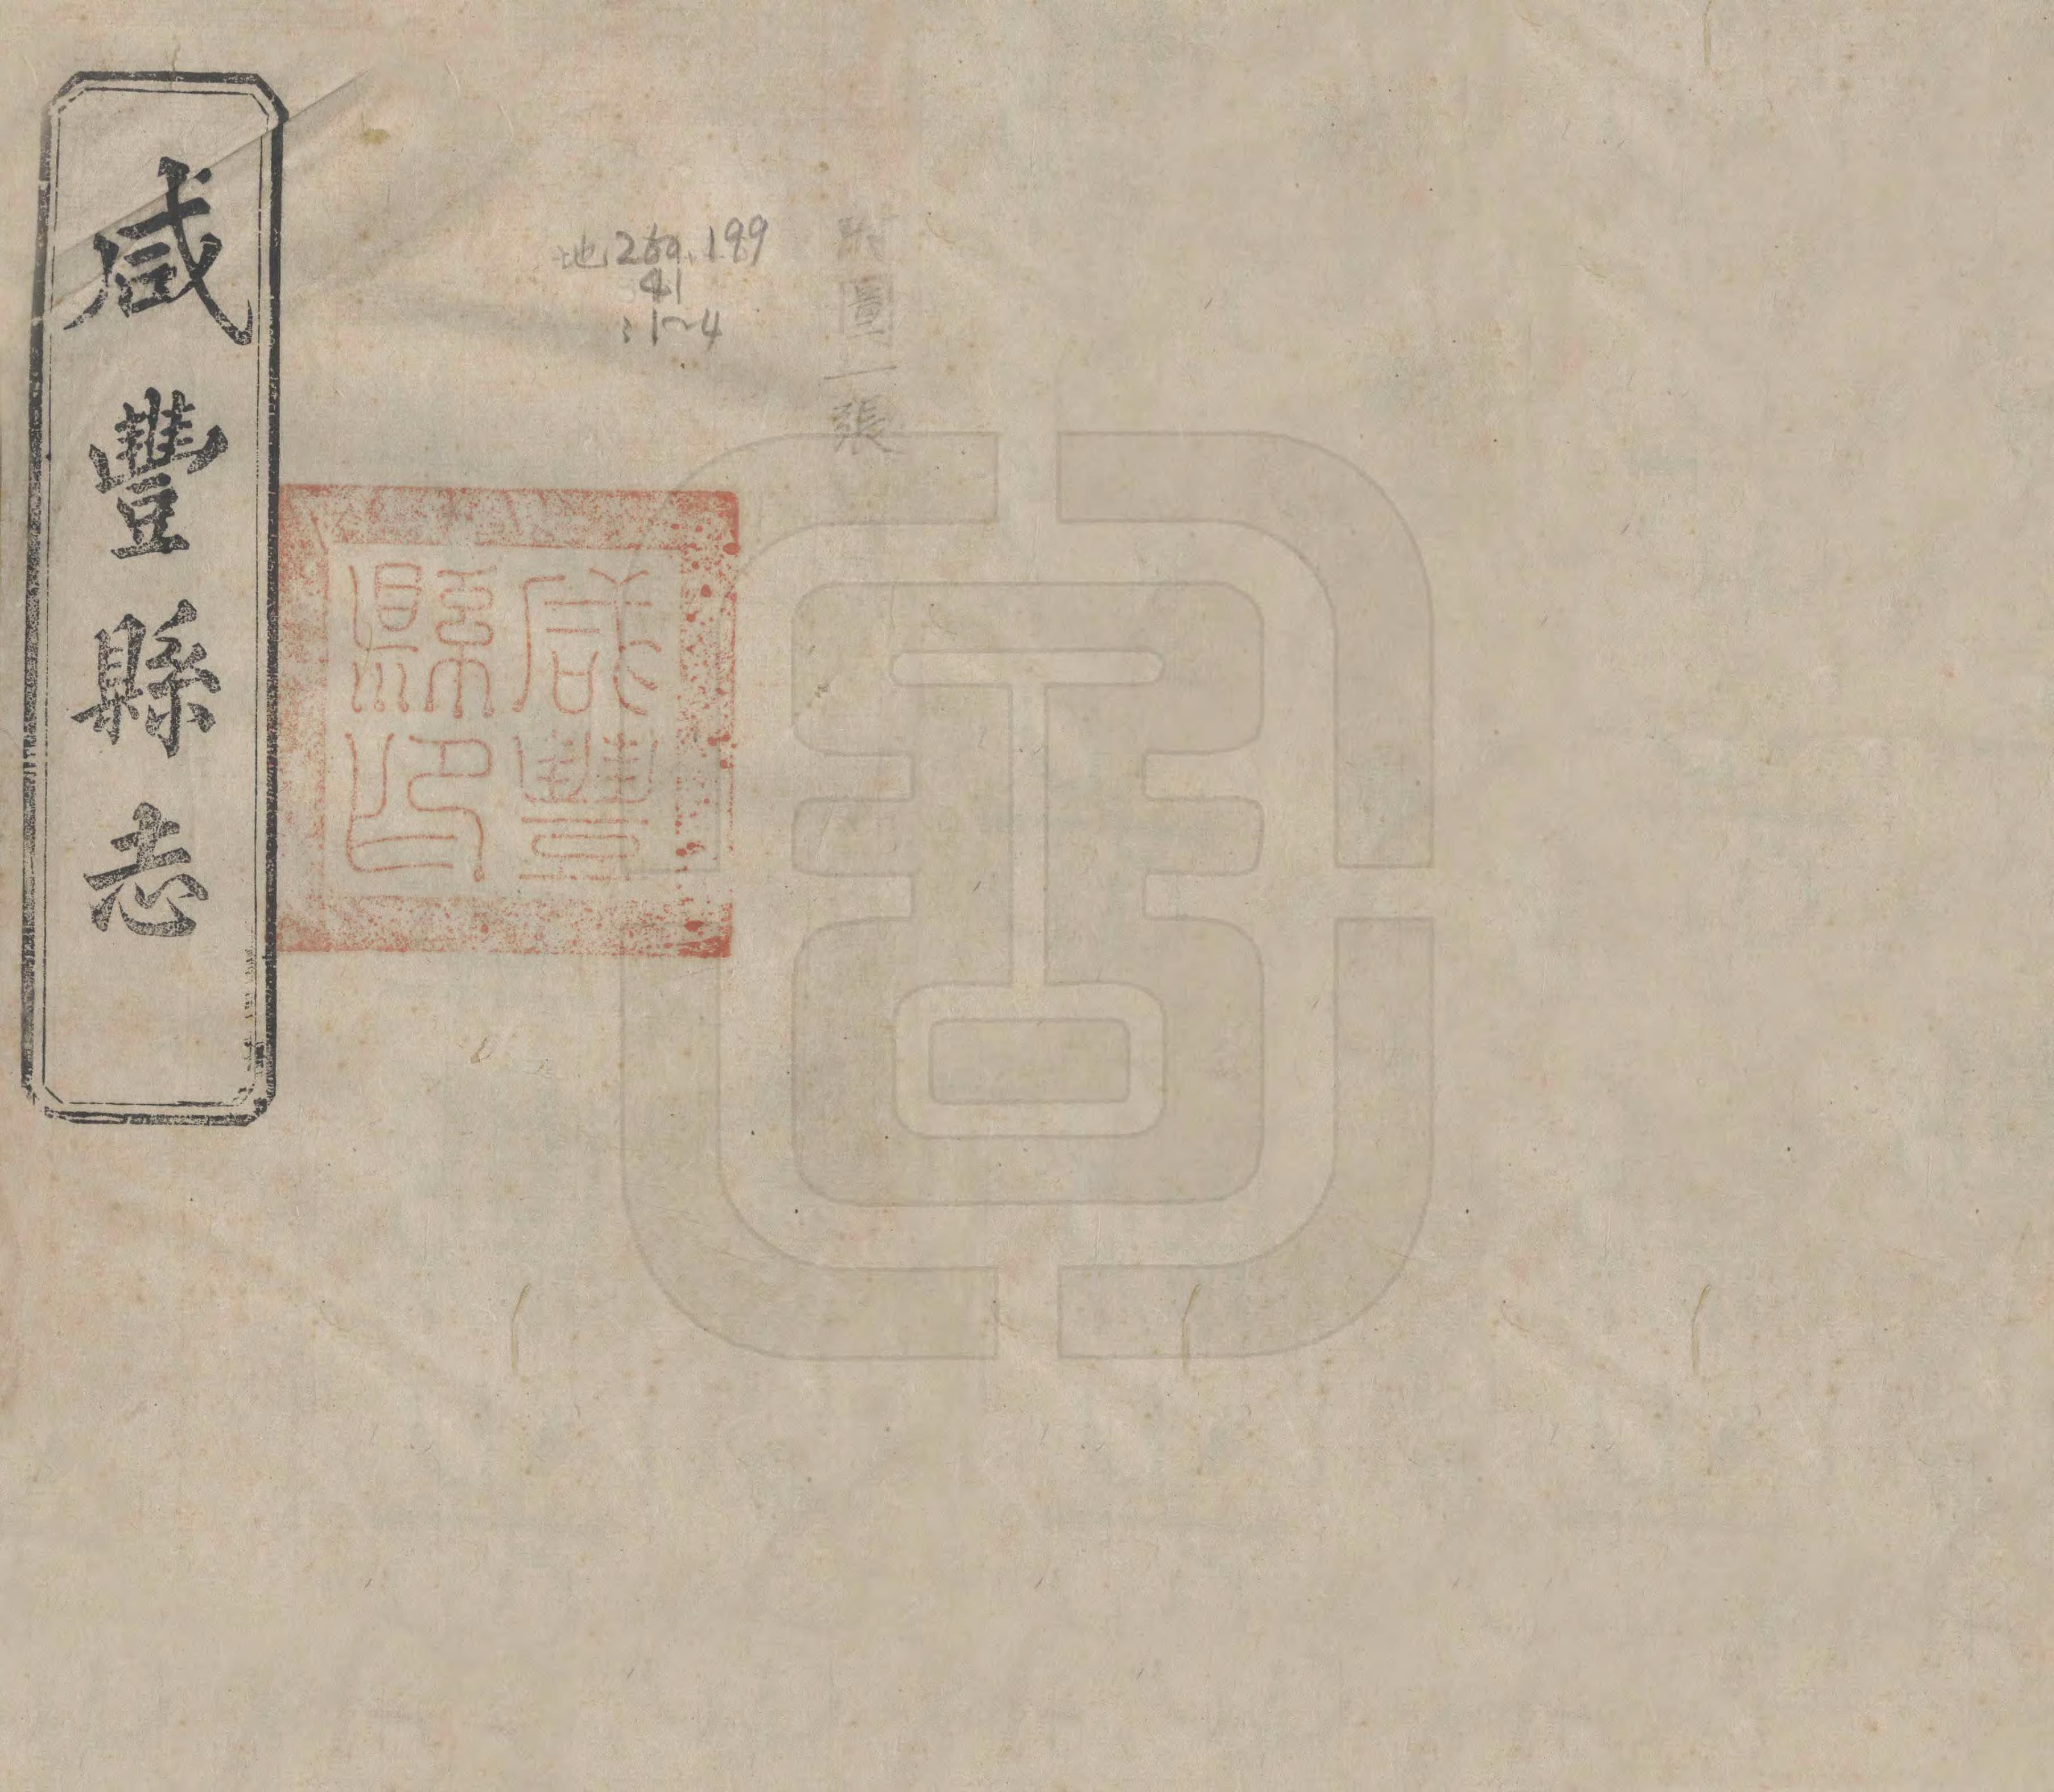 咸豐縣志
地260.199
41
:1~4
附圖一張
咸豐
縣印